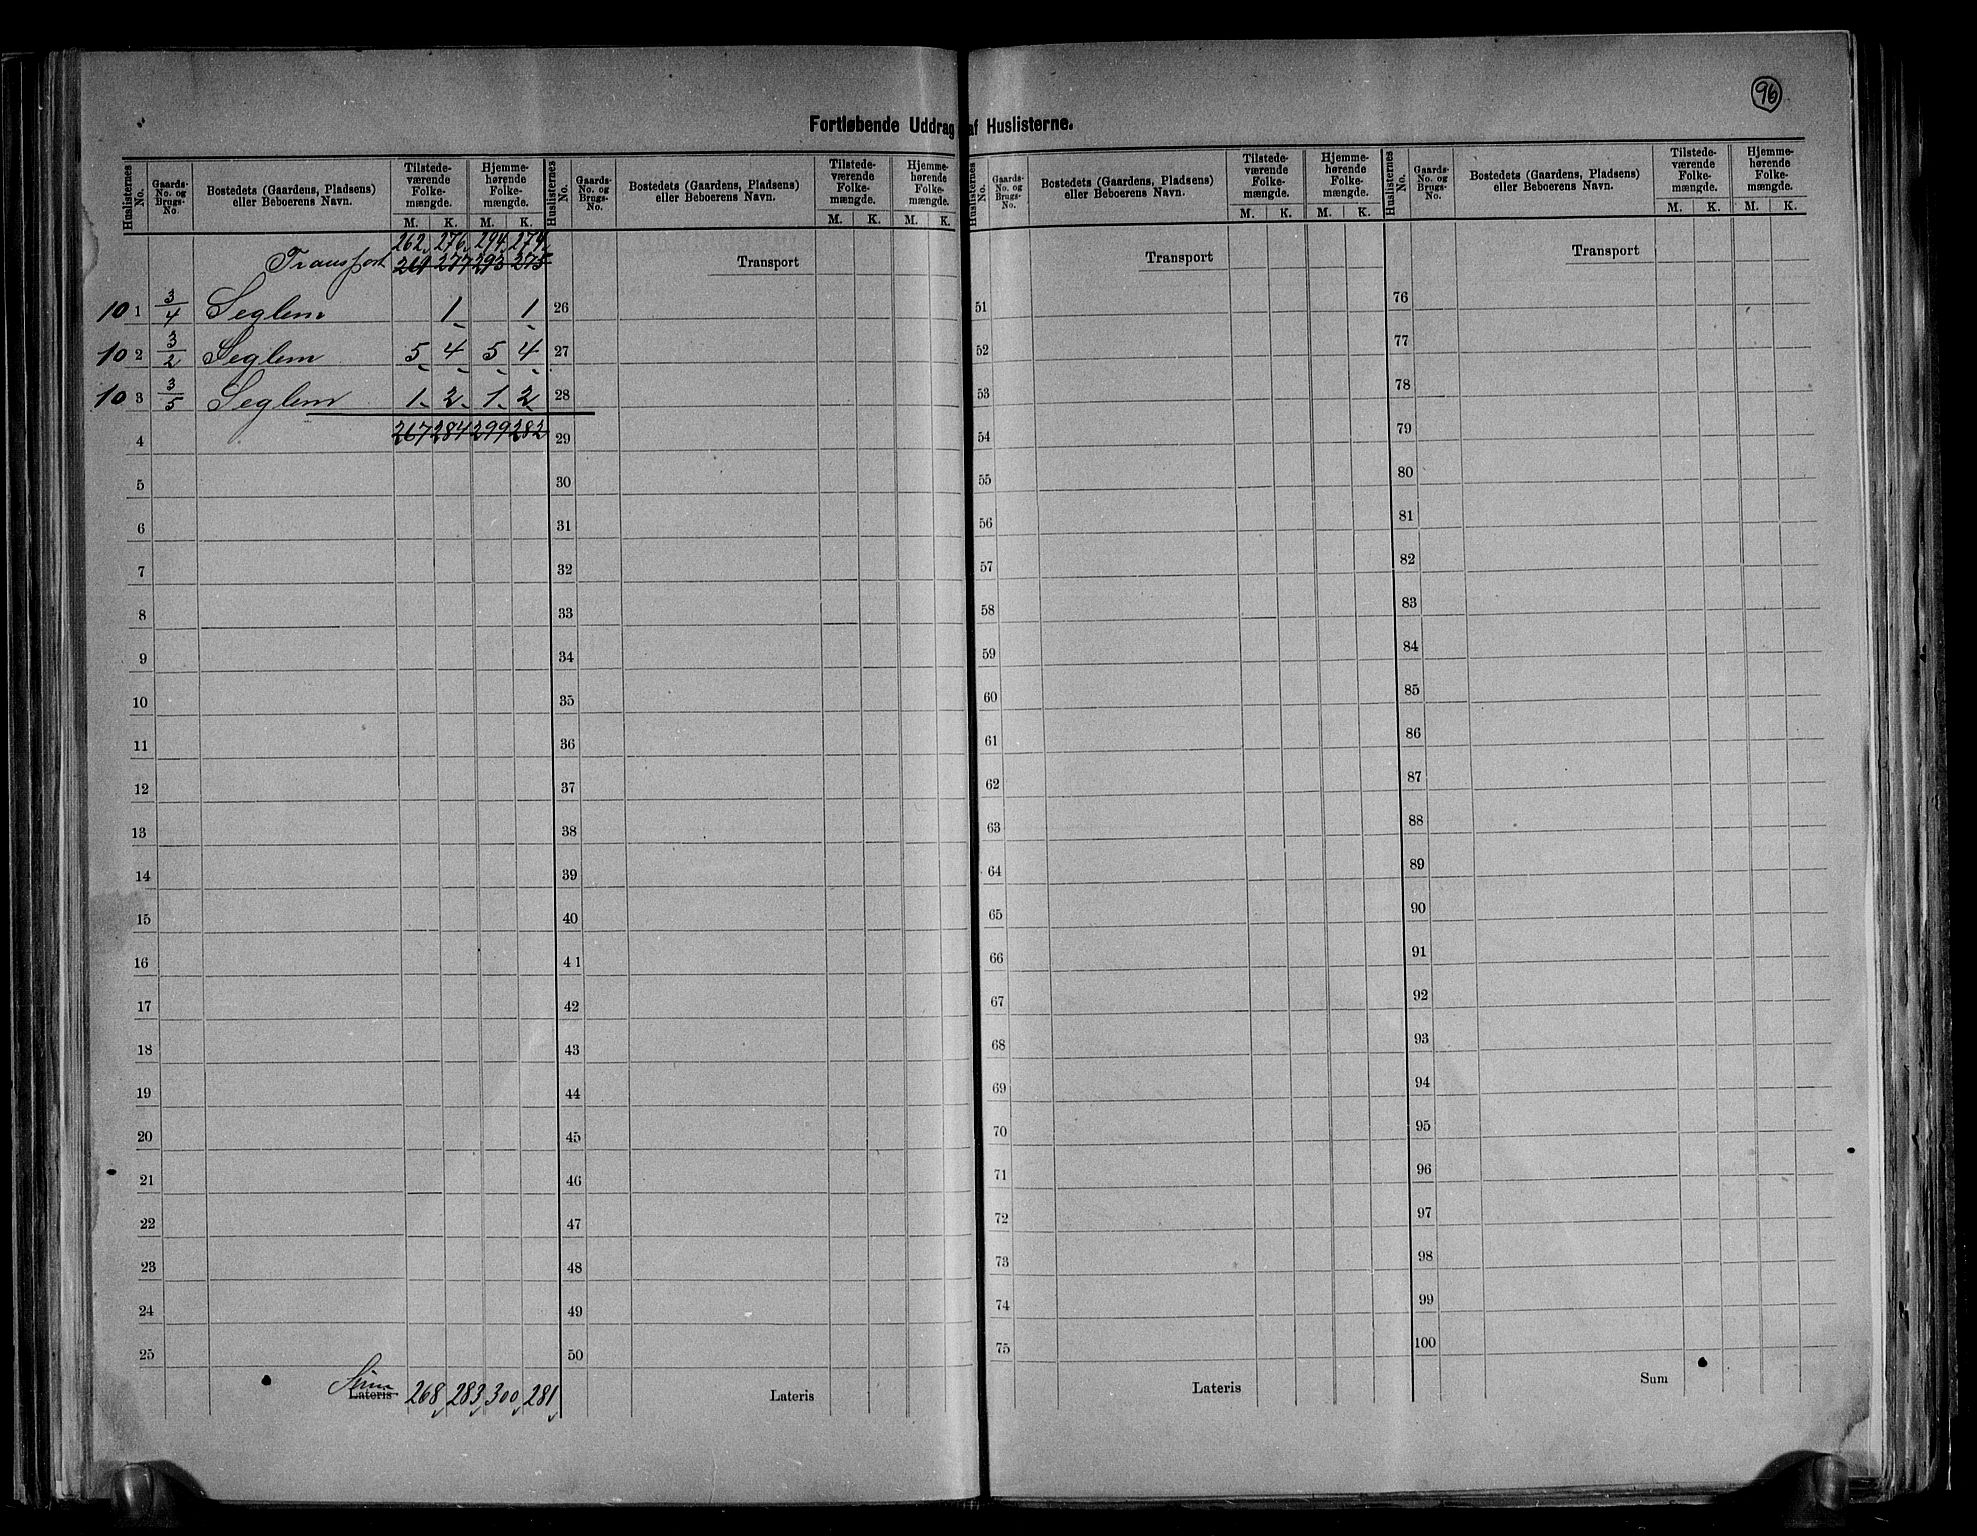 96
Fortløbende Uddrag af Huslisterne.
Huslisternes No. | Gaards-No. og Brugs-No. | Bostedets (Gaardens, Pladsens) eller Beboerens Navn. | Tilstedeværende Folkemængde. M. K. | Hjemmehørende Folkemængde. M. K. | Huslisternes No. | Gaards-No. og Brugs-No. | Bostedets (Gaardens, Pladsens) eller Beboerens Navn. | Tilstedeværende Folkemængde. M. K. | Hjemmehørende Folkemængde. M. K. | Huslisternes No. | Gaards-No. og Brugs-No. | Bostedets (Gaardens, Pladsens) eller Beboerens Navn. | Tilstedeværende Folkemængde. M. K. | Hjemmehørende Folkemængde. M. K. | Huslisternes No. | Gaards-No. og Brugs-No. | Bostedets (Gaardens, Pladsens) eller Beboerens Navn. | Tilstedeværende Folkemængde. M. K. | Hjemmehørende Folkemængde. M. K.
262 276 294 274
Transport 261 277 293 275 Transport Transport Transport
10 1 3/4 Seglem 1 1 26 51 76
10 2 3/2 Seglem 5 4 5 4 27 52 77
10 3 3/5 Seglem 1 2 1 2 28 53 78
4 267 284 299 282 29 54 79
5 30 55 80
6 31 56 81
7 32 57 82
8 33 58 83
9 34 59 84
10 35 60 85
11 36 61 86
12 37 62 87
13 38 63 88
14 39 64 89
15 40 65 90
16 41 66 91
17 42 67 92
18 43 68 93
19 44 69 94
20 45 70 95
21 46 71 96
22 47 72 97
23 48 73 98
24 49 74 99
25 50 75 100
Lateris 268 283 300 281 Lateris Lateris Sum